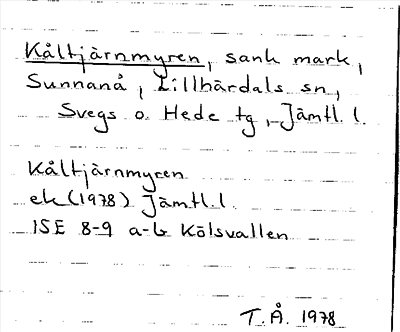 Kåltjärnmyren, sank mark,
Sunnanå, Lillhärdals sn,
Svegs o. Hede tg, Jämtl. l.
Kåltjärnmyren
ek (1978) Jämtl. l.
15E 8-9 a-b Kölsvallen
T. Å. 1978